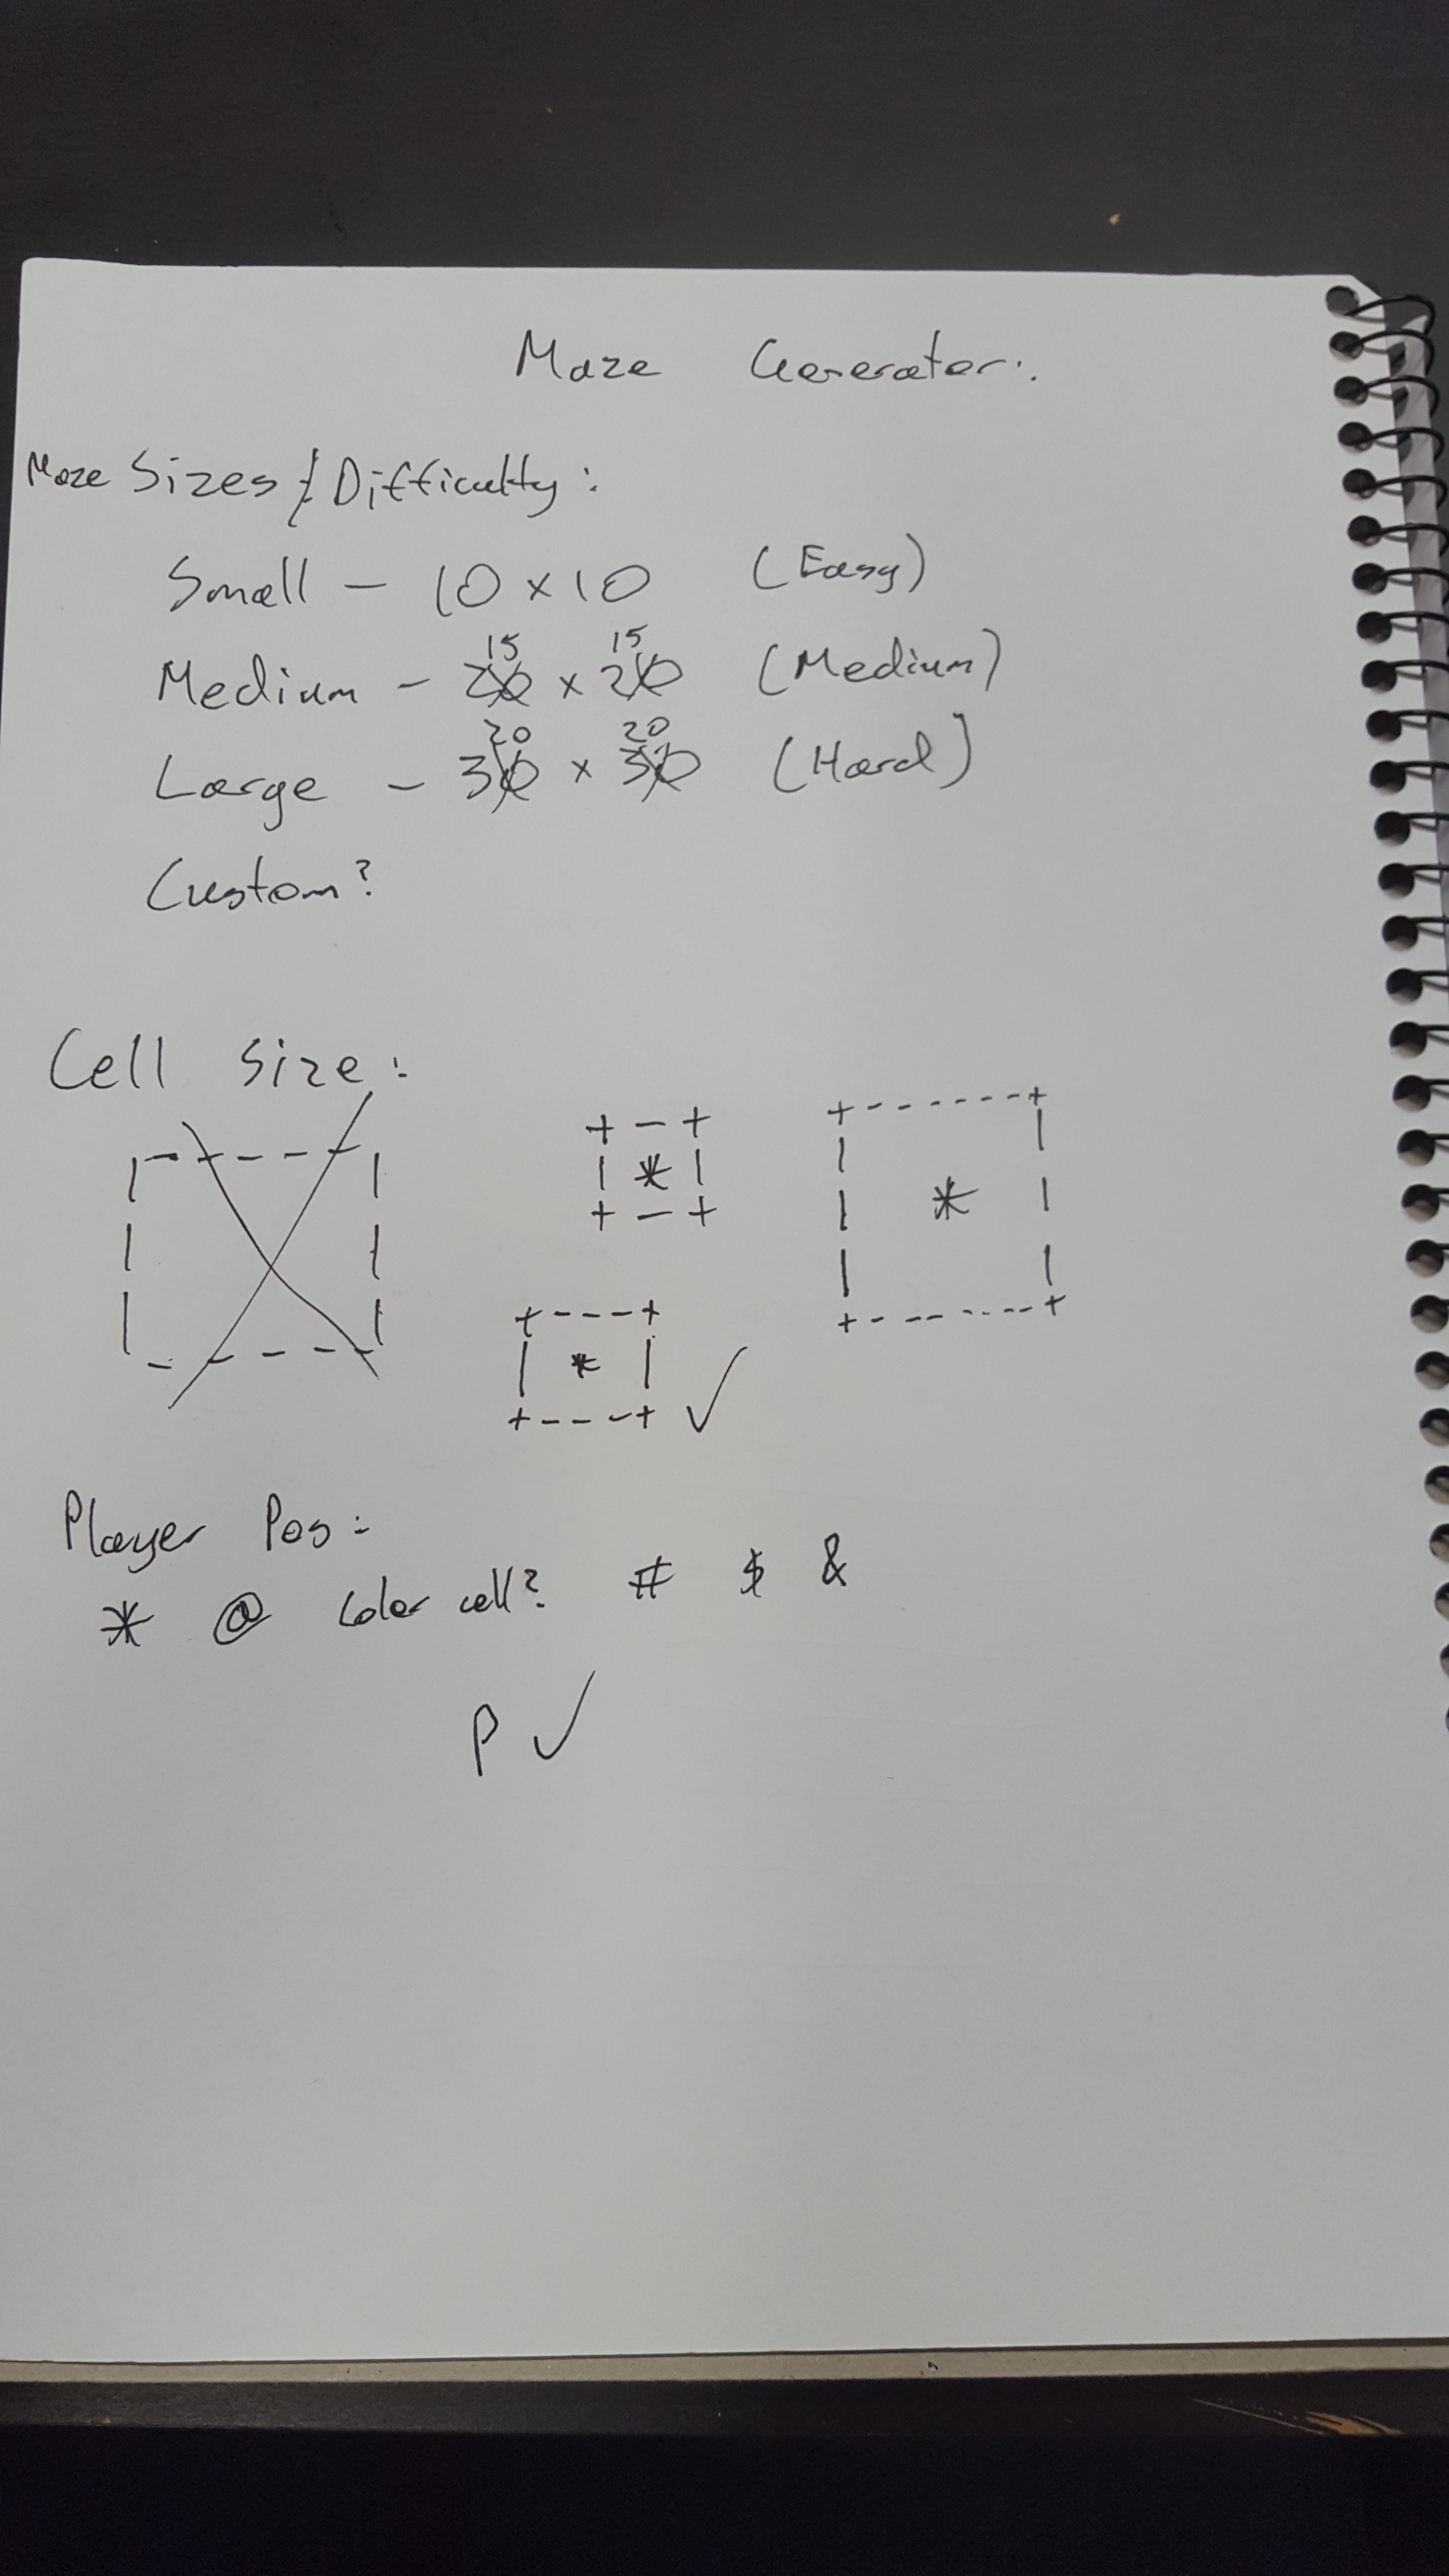 Maze Generator:.
Maze Sizes / Difficulty:
Small - 10 x 10 (Easy)
15 15
Medium - 20 x 20 (Medium)
20 20
Large - 30 x 30 (Hard)
Custom?
Cell Size:
+ - + + - - - - - - - +
| * | | * |
+ - + + - - - - - - - +
+ - - - +
| * |
+ - - - + ✓
Player Pos:
* @ Color cell? # $ &
P ✓